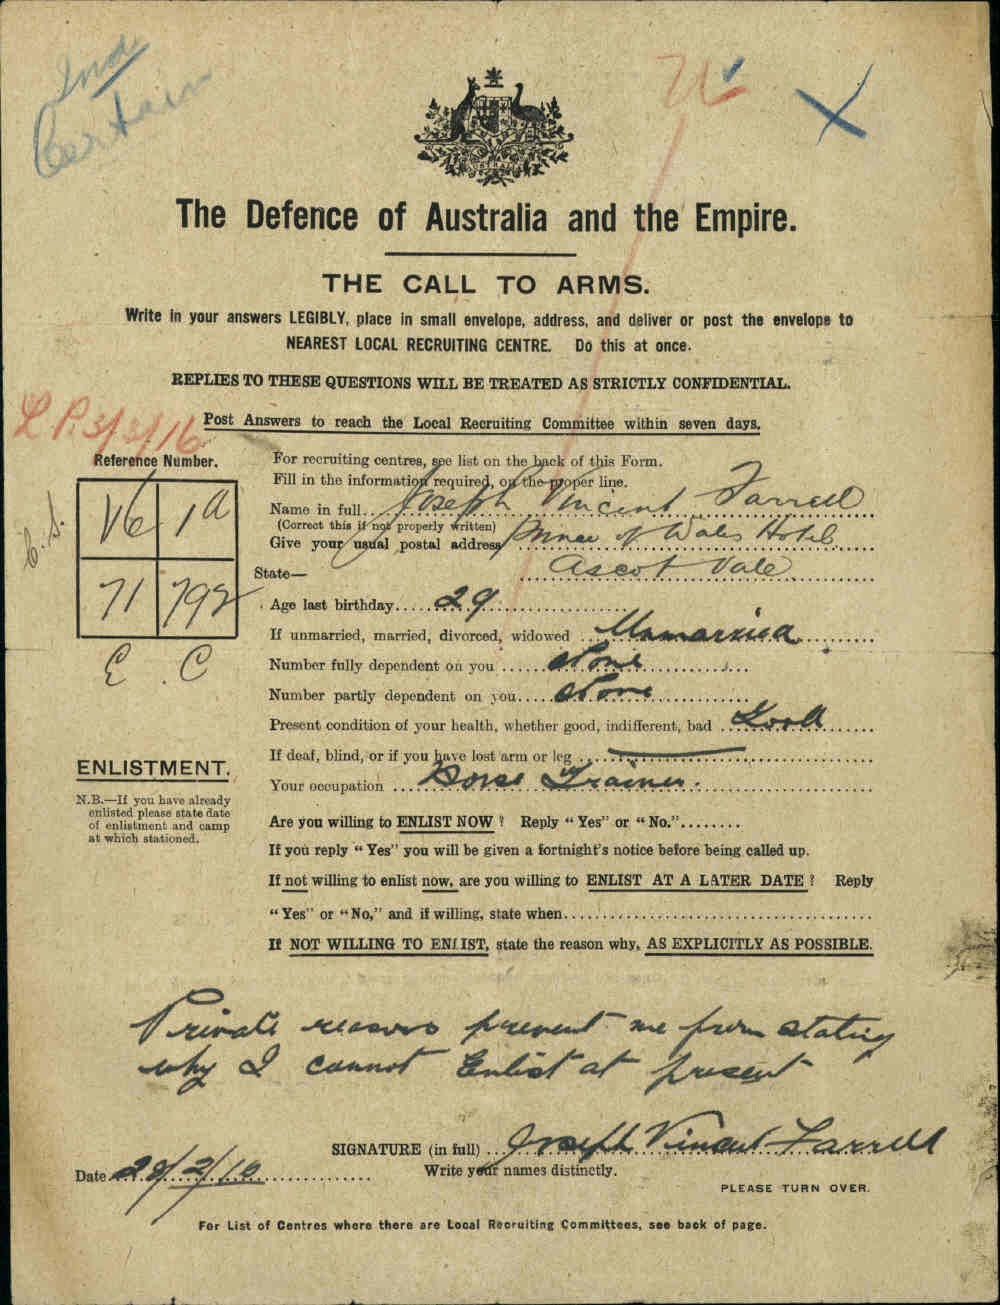 Ind
Certain
The Defence of Australia and the Empire.
THE CALL TO ARMS.
Write in your answers LEGIBLY, place in small envelope, address, and deliver or post the envelope to
NEAREST LOCAL RECRUITING CENTRE. Do this at once.
REPLIES TO THESE QUESTIONS WILL BE TREATED AS STRICTLY CONFIDENTIAL.
L P. 3/3/16
Post Answers to reach the Local Recruiting Committee within seven days.
Reference Number.
V6 1a
71 792
E C
For recruiting centres, see list on the back of this Form.
Fill in the information required, on the proper line.
Name in full Joseph Vincent Farrell
(Correct this if not properly written)
Give your usual postal address Prince of Wales Hotel
State— Ascot Vale
Age last birthday 29
If unmarried, married, divorced, widowed Unmarried
Number fully dependent on you None
Number partly dependent on you None
Present condition of your health, whether good, indifferent, bad Good
If deaf, blind, or if you have lost arm or leg
Your occupation Horse Trainer.
ENLISTMENT.
N.B.—If you have already
enlisted please state date
of enlistment and camp
at which stationed.
Are you willing to ENLIST NOW? Reply "Yes" or "No."
If you reply "Yes" you will be given a fortnight's notice before being called up.
If not willing to enlist now, are you willing to ENLIST AT A LATER DATE? Reply
"Yes" or "No," and if willing, state when
If NOT WILLING TO ENLIST, state the reason why, AS EXPLICITLY AS POSSIBLE.
Private reasons prevent me from stating
why I cannot Enlist at present
SIGNATURE (in full) Joseph Vincent Farrell
Write your names distinctly.
Date 28/2/16
PLEASE TURN OVER.
For List of Centres where there are Local Recruiting Committees, see back of page.